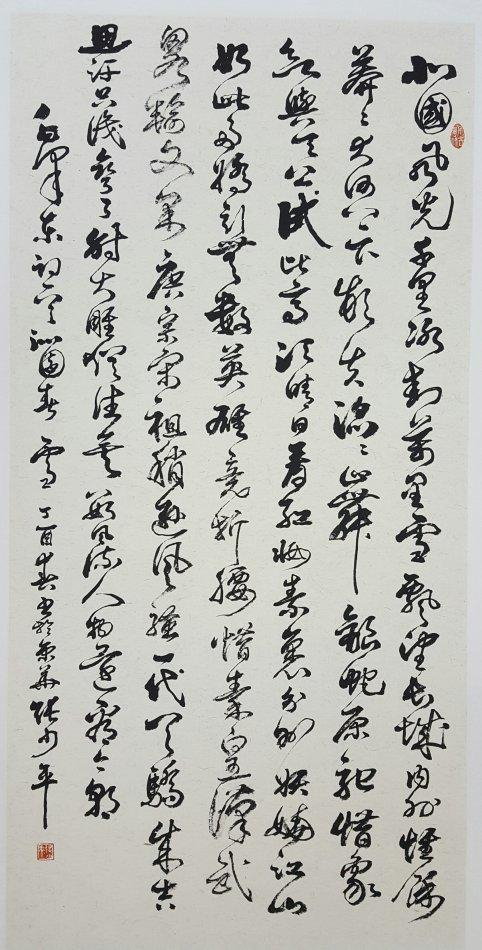 北國風光千里冰封萬里雪飄望長城内外惟餘
莽々大河上下頓失滔々山舞銀蛇原馳蜡象
欲與天公試比高須晴日看紅妝素裹分外妖嬈江山
如此多嬌引無數英雄競折腰惜秦皇漢武
略輸文采唐宗宋祖稍遜風騷一代天驕成吉
思汗只識彎弓射大雕俱往矣數風流人物還看今朝
毛澤東詞沁園春 雪 丁酉春書於京華張少平